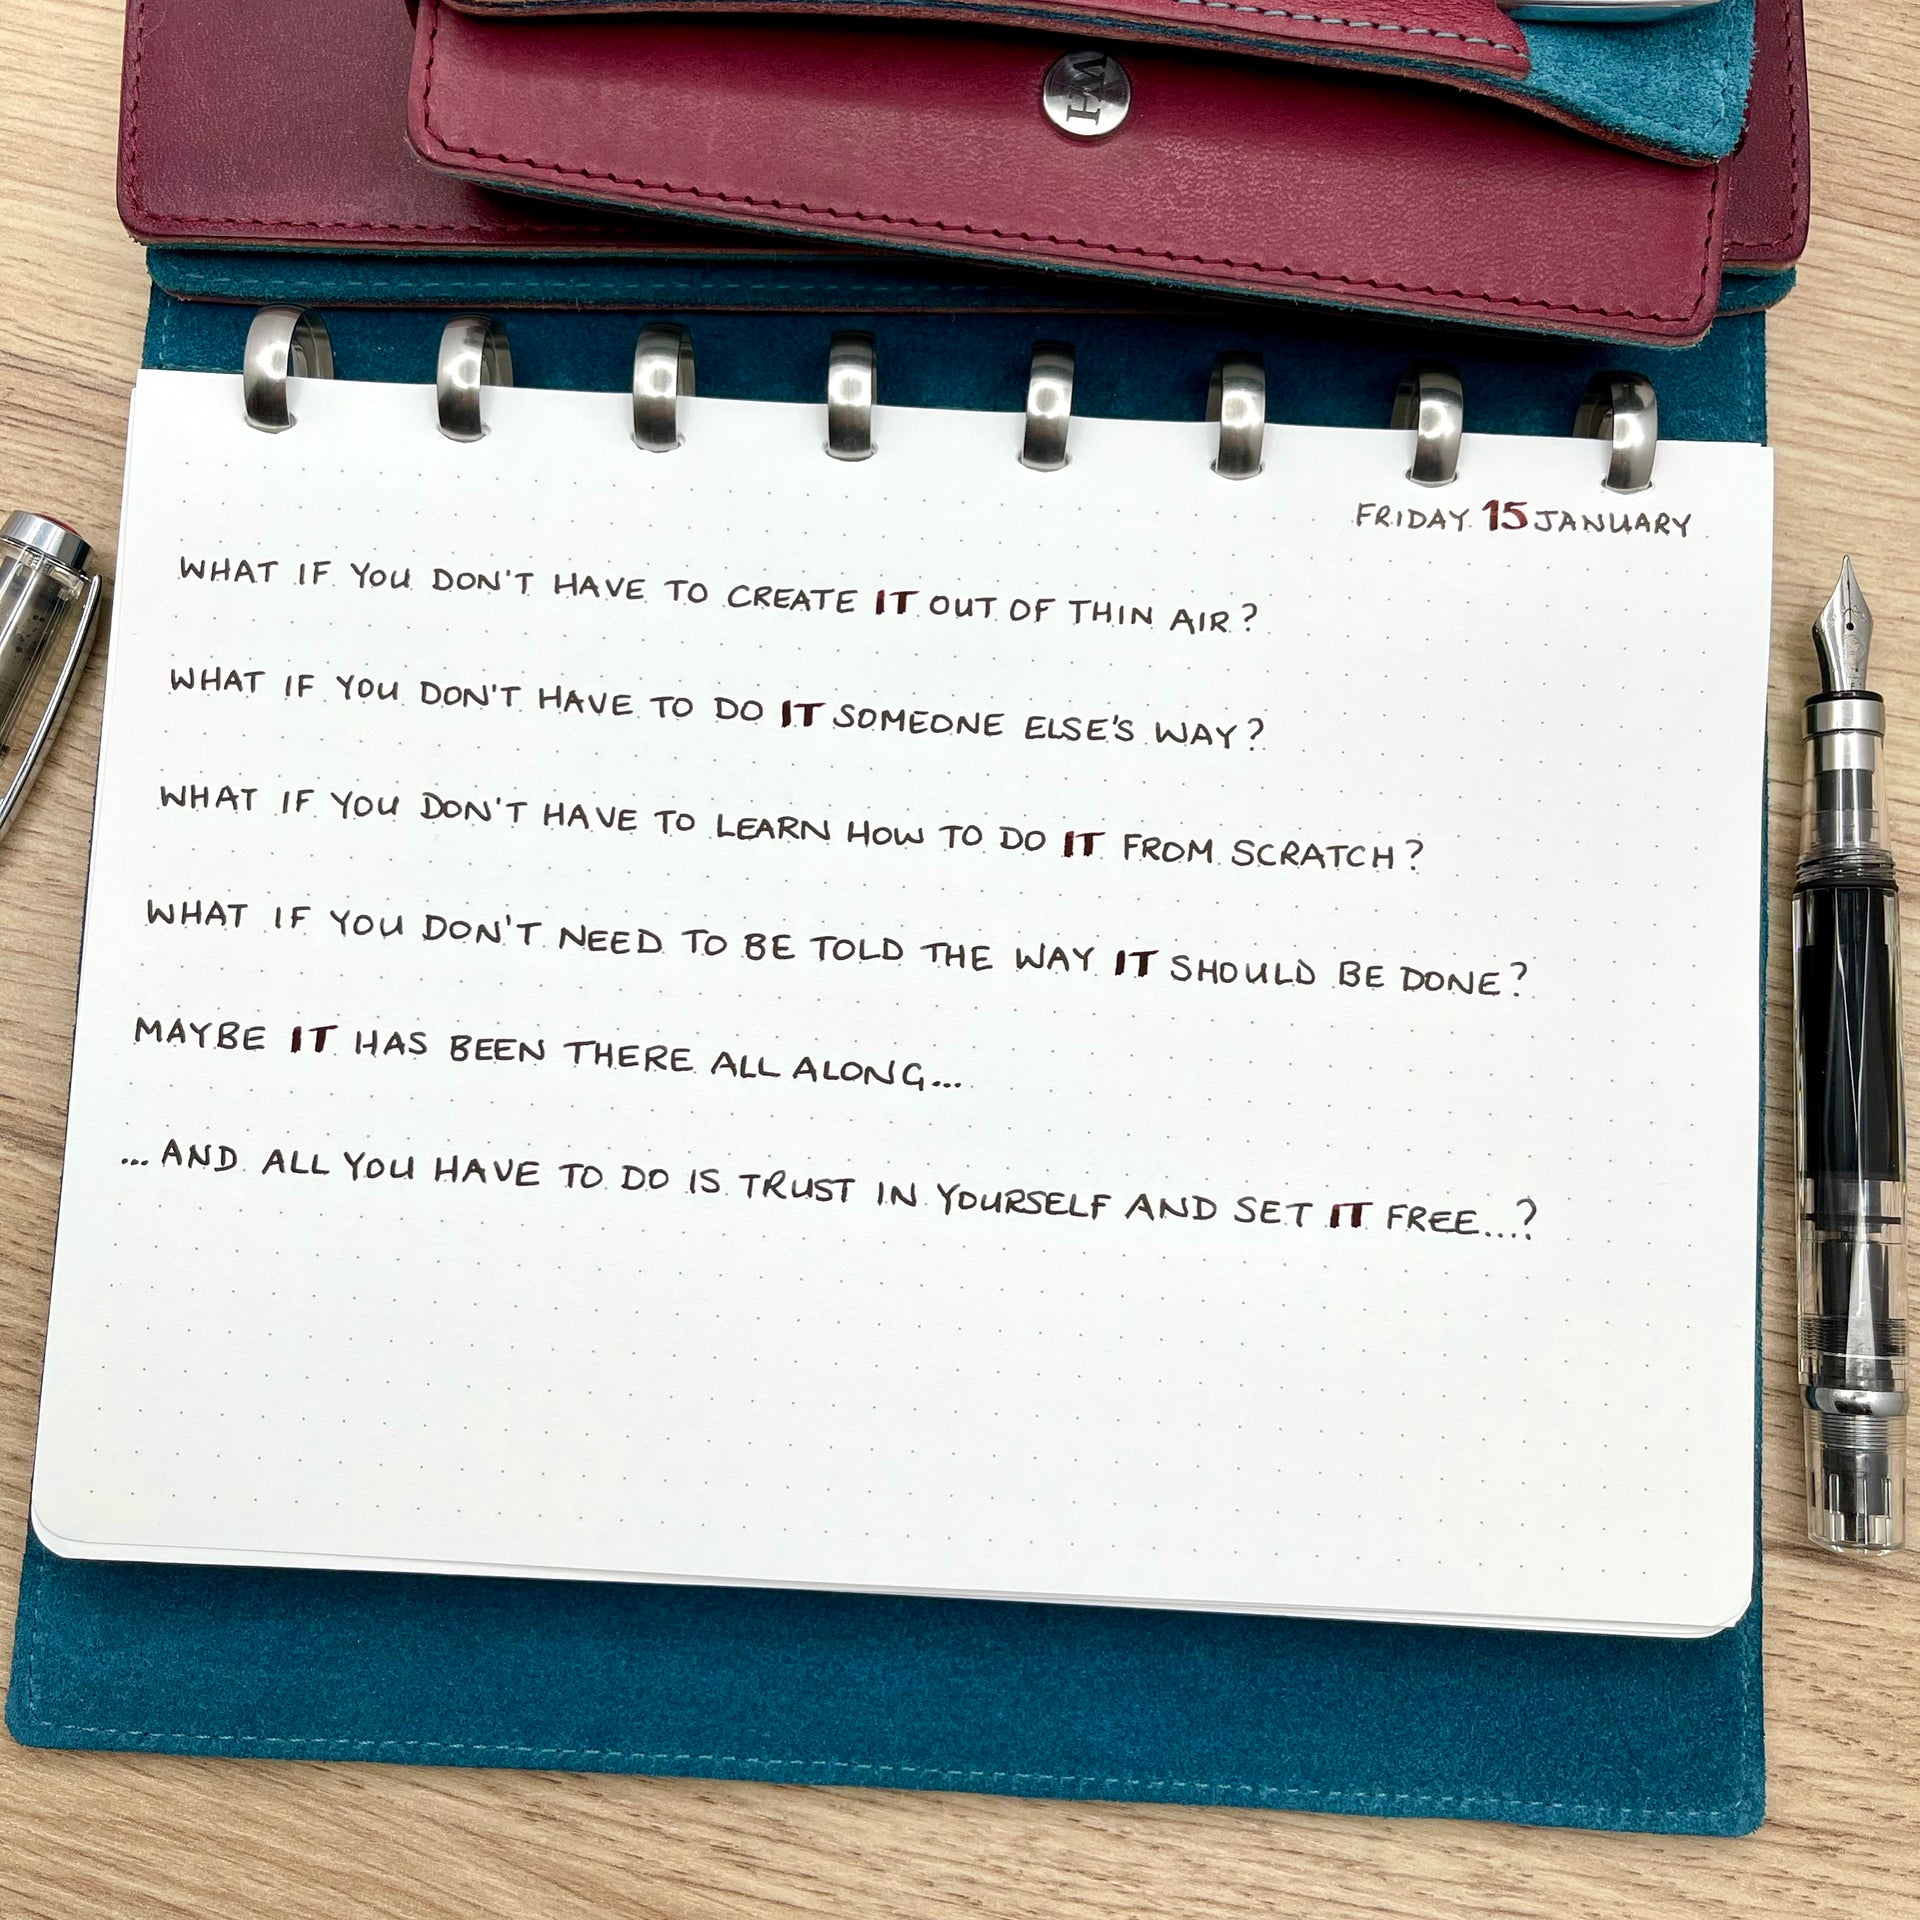 FRIDAY 15 JANUARY
WHAT IF YOU DON'T HAVE TO CREATE IT OUT OF THIN AIR?
WHAT IF YOU DON'T HAVE TO DO IT SOMEONE ELSE'S WAY?
WHAT IF YOU DON'T HAVE TO LEARN HOW TO DO IT FROM SCRATCH?
WHAT IF YOU DON'T NEED TO BE TOLD THE WAY IT SHOULD BE DONE?
MAYBE IT HAS BEEN THERE ALL ALONG...
...AND ALL YOU HAVE TO DO IS TRUST IN YOURSELF AND SET IT FREE...?